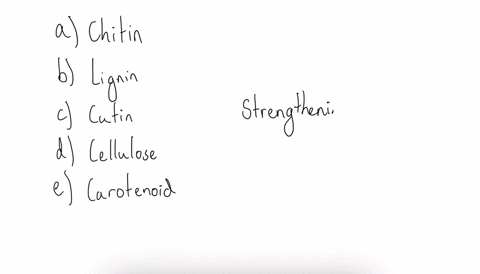 a) Chitin
b) Lignin
c) Cutin
d) Cellulose
e) Carotenoid
Strengtheni